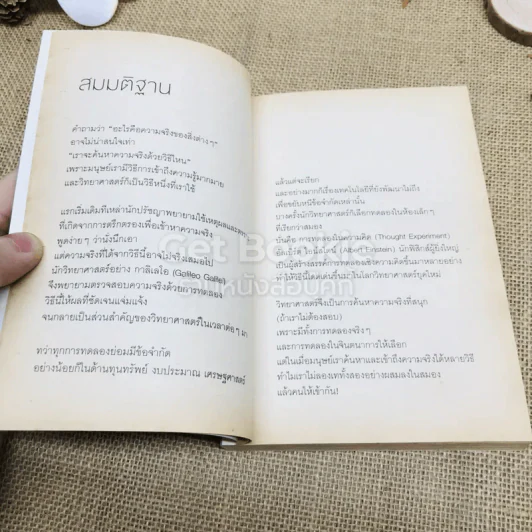 สมมติฐาน
คำถามว่า "อะไรคือความจริงของสิ่งต่างๆ"
อาจไม่น่าสนใจเท่า
"เราจะค้นหาความจริงด้วยวิธีไหน"
เพราะมนุษย์เรามีวิธีการเข้าถึงความรู้มากมาย
และวิทยาศาสตร์ก็เป็นวิธีหนึ่งที่เราใช้
แรกเริ่มเดิมทีเหล่านักปรัชญาพยายามใช้เหตุผลและ
ที่เกิดจากการตรึกตรองเพื่อเข้าหาความจริง
พูดง่ายๆ ว่านั่งนึกเอา
แต่ความจริงที่ได้จากวิธีนี้อาจไม่จริงเสมอไป
นักวิทยาศาสตร์อย่าง กาลิเลโอ (Galileo Galilei)
จึงพยายามตรวจสอบความจริงด้วยการทดลอง
วิธีนี้ให้ผลที่ชัดเจนแจ่มแจ้ง
จนกลายเป็นส่วนสำคัญของวิทยาศาสตร์ในเวลาต่อๆ มา
ทว่าทุกการทดลองย่อมมีข้อจำกัด
อย่างน้อยก็ในด้านทุนทรัพย์ งบประมาณ เศรษฐศาสตร์
แล้วแต่จะเรียก
และอย่างมากก็เรื่องเทคโนโลยีที่ยังพัฒนาไม่ถึง
เพื่อขยับหนีข้อจำกัดเหล่านั้น
บางครั้งนักวิทยาศาสตร์ก็เลือกทดลองในห้องเล็กๆ
ที่เรียกว่าสมอง
นั่นคือ การทดลองในความคิด (Thought Experiment)
อัลเบิร์ต ไอน์สไตน์ (Albert Einstein) นักฟิสิกส์ผู้ยิ่งใหญ่
เป็นผู้สร้างสรรค์การทดลองเชิงความคิดขึ้นมาหลายอย่าง
ทำให้วิธีนี้โดดเด่นขึ้นมาในโลกวิทยาศาสตร์ยุคใหม่
วิทยาศาสตร์จึงเป็นการค้นหาความจริงที่สนุก
(ถ้าเราไม่ต้องสอบ)
เพราะมีทั้งการทดลองจริงๆ
และการทดลองในจินตนาการให้เลือก
แต่ในเมื่อมนุษย์เราค้นหาและเข้าถึงความจริงได้หลายวิธี
ทำไมเราไม่ลองเททั้งสองอย่างผสมลงในสมอง
แล้วคนให้เข้ากัน!